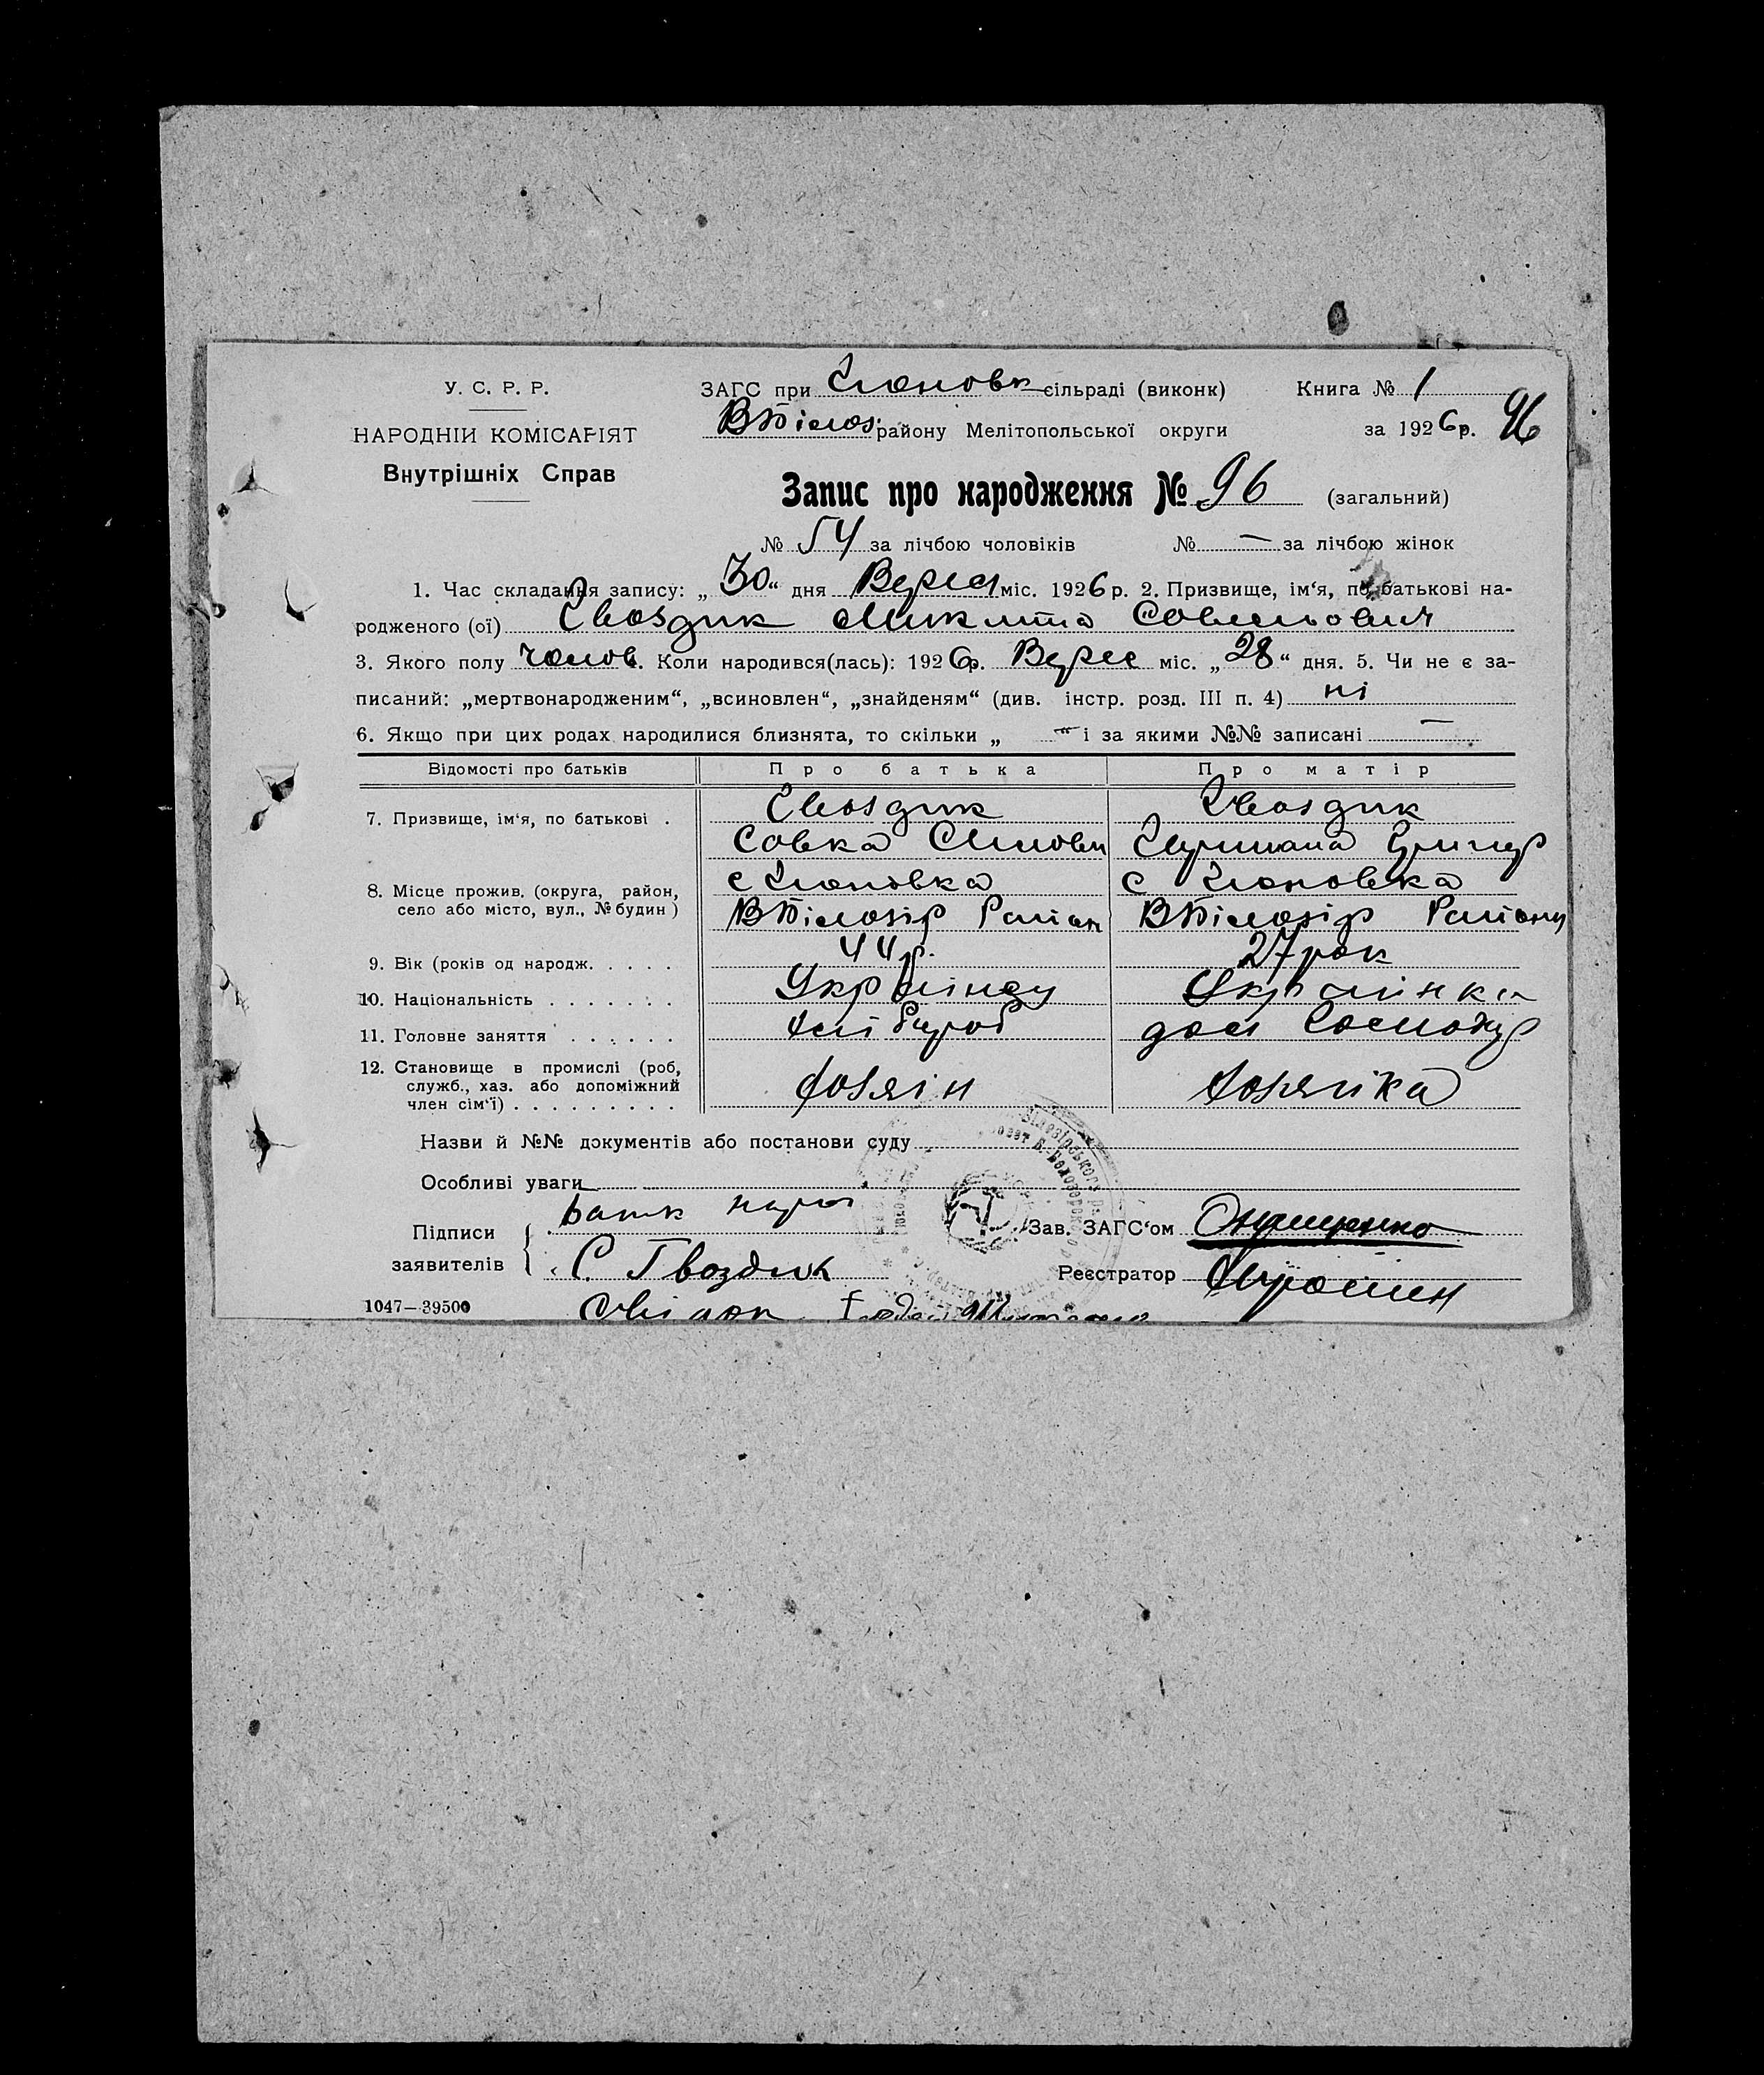 У. С. Р. Р.
НАРОДНІЙ КОМІСАРІЯТ
Внутрішніх Справ
ЗАГС при сільраді (виконк) Книга № 1
В Білоз. району Мелітопольської округи за 1926 р. 96
Запис про народження № 96 (загальний)
№ 54 за лічбою чоловіків № — за лічбою жінок
1. Час складання запису: „30“ дня Верес міс. 1926 р. 2. Призвище, ім‘я, по батькові на-
родженого (ої) Гвоздик Микита Совельович
3. Якого полу чолов. Коли народився(лась): 1926 р. Верес міс. „28“ дня. 5. Чи не є за-
писаний: „мертвонародженим“, „всиновлен“, „знайденям“ (див. інстр. розд. III п. 4) ні
6. Якщо при цих родах народилися близнята, то скільки „ —“ і за якими №№ записані —
Відомості про батьків Про батька Про матір
7. Призвище, ім‘я, по батькові . Гвоздик Гвоздик
Совка Григор
8. Місце прожив. (округа, район, с с
село або місто, вул., № будин) В Білозір Район В Білозір Району
9. Вік (років од народж. . . . . 44 р. 27 рок
10. Національність . . . . . . . Українец Українка
11. Головне заняття . . . . . . дом Господар
12. Становище в промислі (роб,
служб., хаз. або допоміжний
член сім‘ї) . . . . . . . . .
Назви й №№ документів або постанови суду
Особливі уваги
Підписи Батьк Зав. ЗАГС‘ом Онищенко
заявителів С. Гвоздик Реєстратор
1047—39500